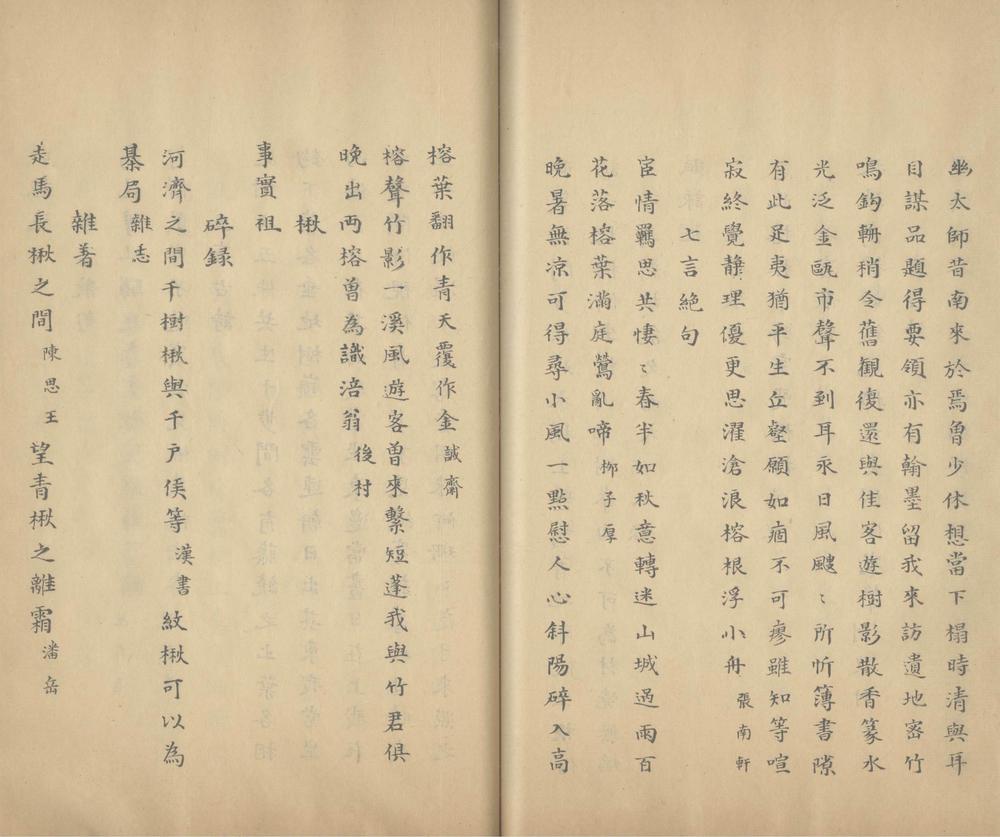 幽太師昔南來於焉曾少休想當下榻時清與耳
目謀品題得要領亦有翰墨留我來訪遺地密竹
鳴鈎輈稍令舊觀復還與佳客遊樹影散香篆水
光泛金甌市聲不到耳永日風颼〻所忻簿書隙
有此足夷猶平生丘壑願如痼不可廖雖知等喧
寂終覺靜理優更思濯滄浪榕根浮小舟張南軒
七言絕句
宦情羈思共悽〻春半如秋意轉迷山城過雨百
花落榕葉滿庭鶯亂啼栁子厚
晚暑無凉可得尋小風一點慰人心斜陽碎入高
榕葉翻作青天覆作金誠齋
榕聲竹影一溪風遊客曾來繫短蓬我與竹君俱
晚出兩榕曽為識涪翁後村
楸
事實祖
碎録
河濟之間千樹楸與千户侯等漢書紋楸可以為
棊局雜志
雜著
走馬長楸之間陳思王望青楸之離霜潘岳